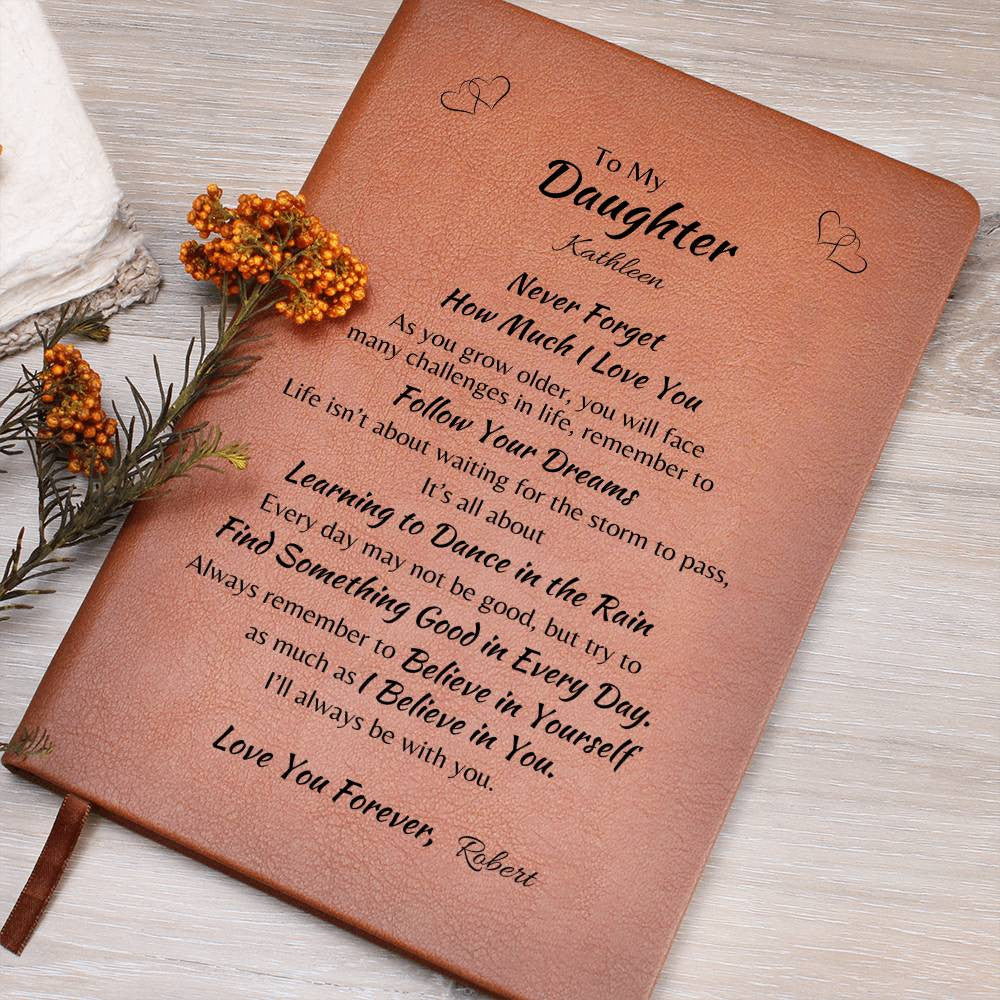 To My
Daughter
Kathleen
Never Forget
How Much I Love You
As you grow older, you will face
many challenges in life, remember to
Follow Your Dreams
Life isn’t about waiting for the storm to pass,
It’s all about
Learning to Dance in the Rain
Every day may not be good, but try to
Find Something Good in Every Day.
Always remember to Believe in Yourself
as much as I Believe in You.
I’ll always be with you.
Love You Forever, Robert